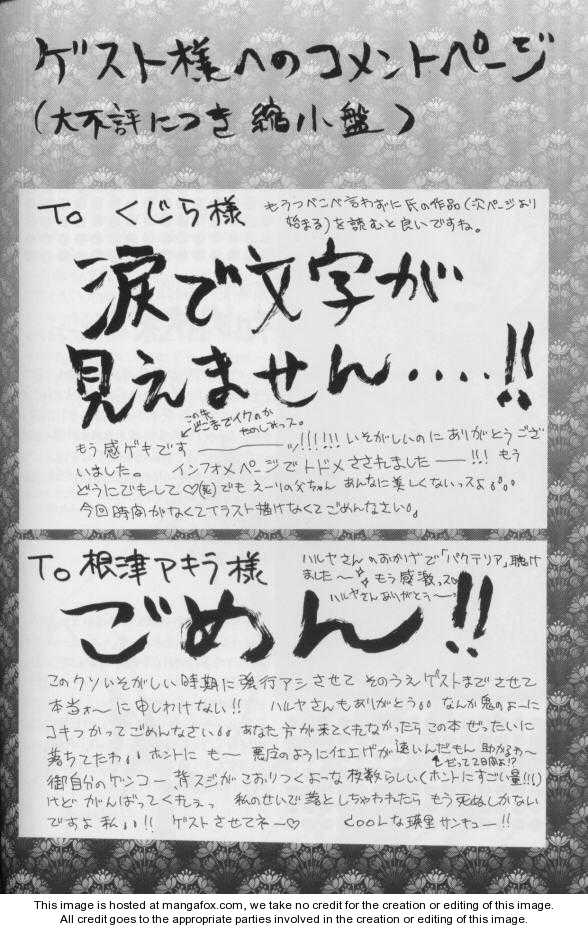 ゲスト様へのコメントページ
(大不評につき縮小盤)
To くじら様
もうつべこべ言わずに氏の作品(次ページより
始まる)を読むと良いですね。
涙で文字が
見えません....!!
この先
どこまでイクのか
たのしみっス。
もう感ゲキです――ッ!!!!! いそがしいのにありがとうござ
いました。 インフォメページでトドメさされました――!!! もう
どうにでもして♡(死)でも えーりの父ちゃん あんなに美しくないっスよ。。。
今回時間がなくてイラスト描けなくてごめんなさい。
To 根津アキラ様
ハルヤさんのおかげで「バクテリア」聴け
ました〜 もう感激っス
ハルヤさんありがとう〜
ごめん!!
このクソいそがしい時期に強行アシさせて そのうえゲストまでさせて
本当ォ〜に申しわけない!! ハルヤさんもありがとう。。 なんか鬼のよーに
コキつかってごめんなさい。。 あなた方が来てくれなかったら この本ぜったいに
落ちてたわ。。 ホントに も〜 悪庄のように仕上げが速いんだもん 助かるわ〜
御自分のゲンコー、背スジがこおりつくよーな枚数らしい(ホントにすごい量!!)
けど がんばってくれェっ 私のせいで落としちゃわれたら もう死ぬしかない
ですよ 私。!! ゲストさせてネー♡ COOLな瑛里サンキュー!!
This image is hosted at mangafox.com, we take no credit for the creation or editing of this image.
All credit goes to the appropriate parties involved in the creation or editing of this image.